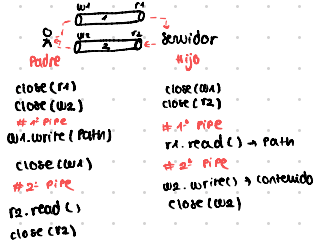 w1 r1
1
w2 r2
2
Padre
Servidor
Hijo
close(r1)
close(w2)
# 1º Pipe
w1.write(Path)
close(w1)
# 2º Pipe
r2.read()
close(r2)
close(w1)
close(r2)
# 1º Pipe
r1.read() → Path
# 2º Pipe
w2.write() → contenido
close(w2)